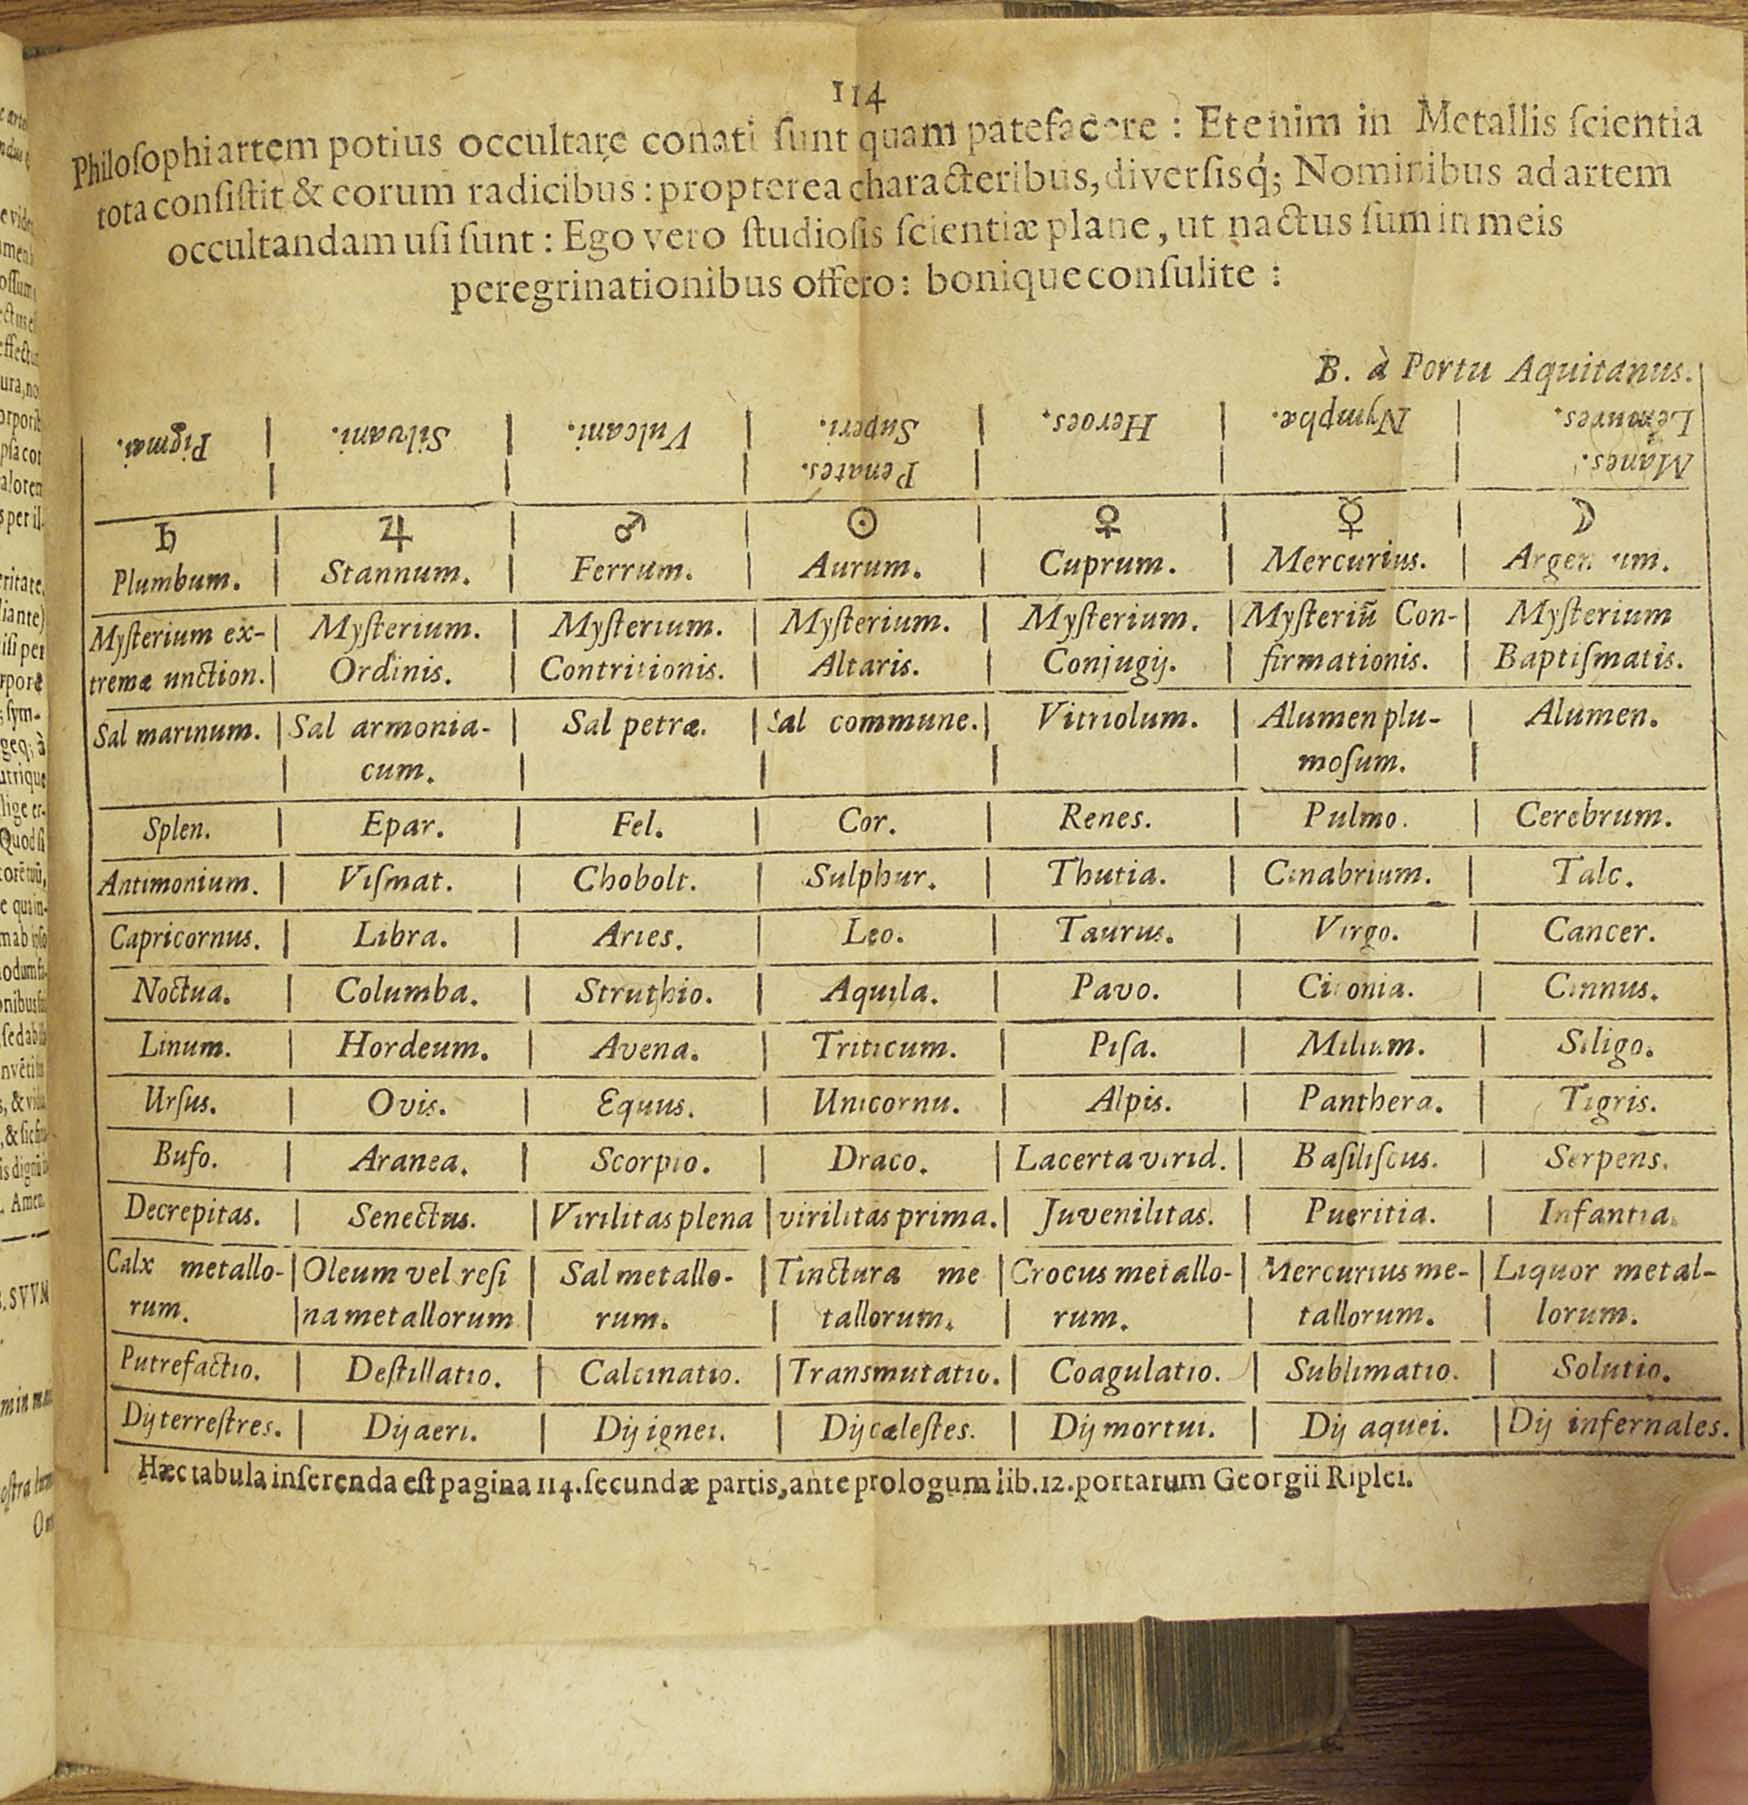 114
Philosophi artem potius occultare conati sunt quam patefacere : Etenim in Metallis scientia
tota consistit & eorum radicibus : propterea characteribus, diversisq́; Nominibus ad artem
occultandam usi sunt : Ego vero studiosis scientiæ plane, ut nactus sum in meis
peregrinationibus offero : bonique consulite :
B. à Portu Aquitanus.
Pigmai. | Silvani. | Vulcani. | Superi. | Heroes. | Nymphæ. | Lemures.
Penates. | Manes.
♄ | ♃ | ♂ | ☉ | ♀ | ☿ | ☽
Plumbum. | Stannum. | Ferrum. | Aurum. | Cuprum. | Mercurius. | Argentum.
Mysterium ex- | Mysterium. | Mysterium. | Mysterium. | Mysterium. | Mysteriũ Con- | Mysterium
tremæ unction. | Ordinis. | Contritionis. | Altaris. | Conjugij. | firmationis. | Baptismatis.
Sal marinum. | Sal armonia- | Sal petræ. | Sal commune. | Vitriolum. | Alumen plu- | Alumen.
cum. | mosum.
Splen. | Epar. | Fel. | Cor. | Renes. | Pulmo. | Cerebrum.
Antimonium. | Vismat. | Chobolt. | Sulphur. | Thutia. | Cinabrium. | Talc.
Capricornus. | Libra. | Aries. | Leo. | Taurus. | Virgo. | Cancer.
Noctua. | Columba. | Struthio. | Aquila. | Pavo. | Ciconia. | Cinnus.
Linum. | Hordeum. | Avena. | Triticum. | Pisa. | Milium. | Siligo.
Ursus. | Ovis. | Equus. | Unicornu. | Alpis. | Panthera. | Tigris.
Bufo. | Aranea. | Scorpio. | Draco. | Lacerta virid. | Basiliscus. | Serpens.
Decrepitas. | Senectus. | Virilitas plena | virilitas prima. | Juvenilitas. | Pueritia. | Infantia.
Calx metallo- | Oleum vel resi | Sal metallo- | Tinctura me | Crocus metallo- | Mercurius me- | Liquor metal-
rum. | na metallorum | rum. | tallorum. | rum. | tallorum. | lorum.
Putrefactio. | Destillatio. | Calcinatio. | Transmutatio. | Coagulatio. | Sublimatio. | Solutio.
Dij terrestres. | Dij aeri. | Dij ignei. | Dij cælestes. | Dij mortui. | Dij aquei. | Dij infernales.
Hæc tabula inserenda est pagina 114. secundæ partis, ante prologum lib. 12. portarum Georgii Riplei.